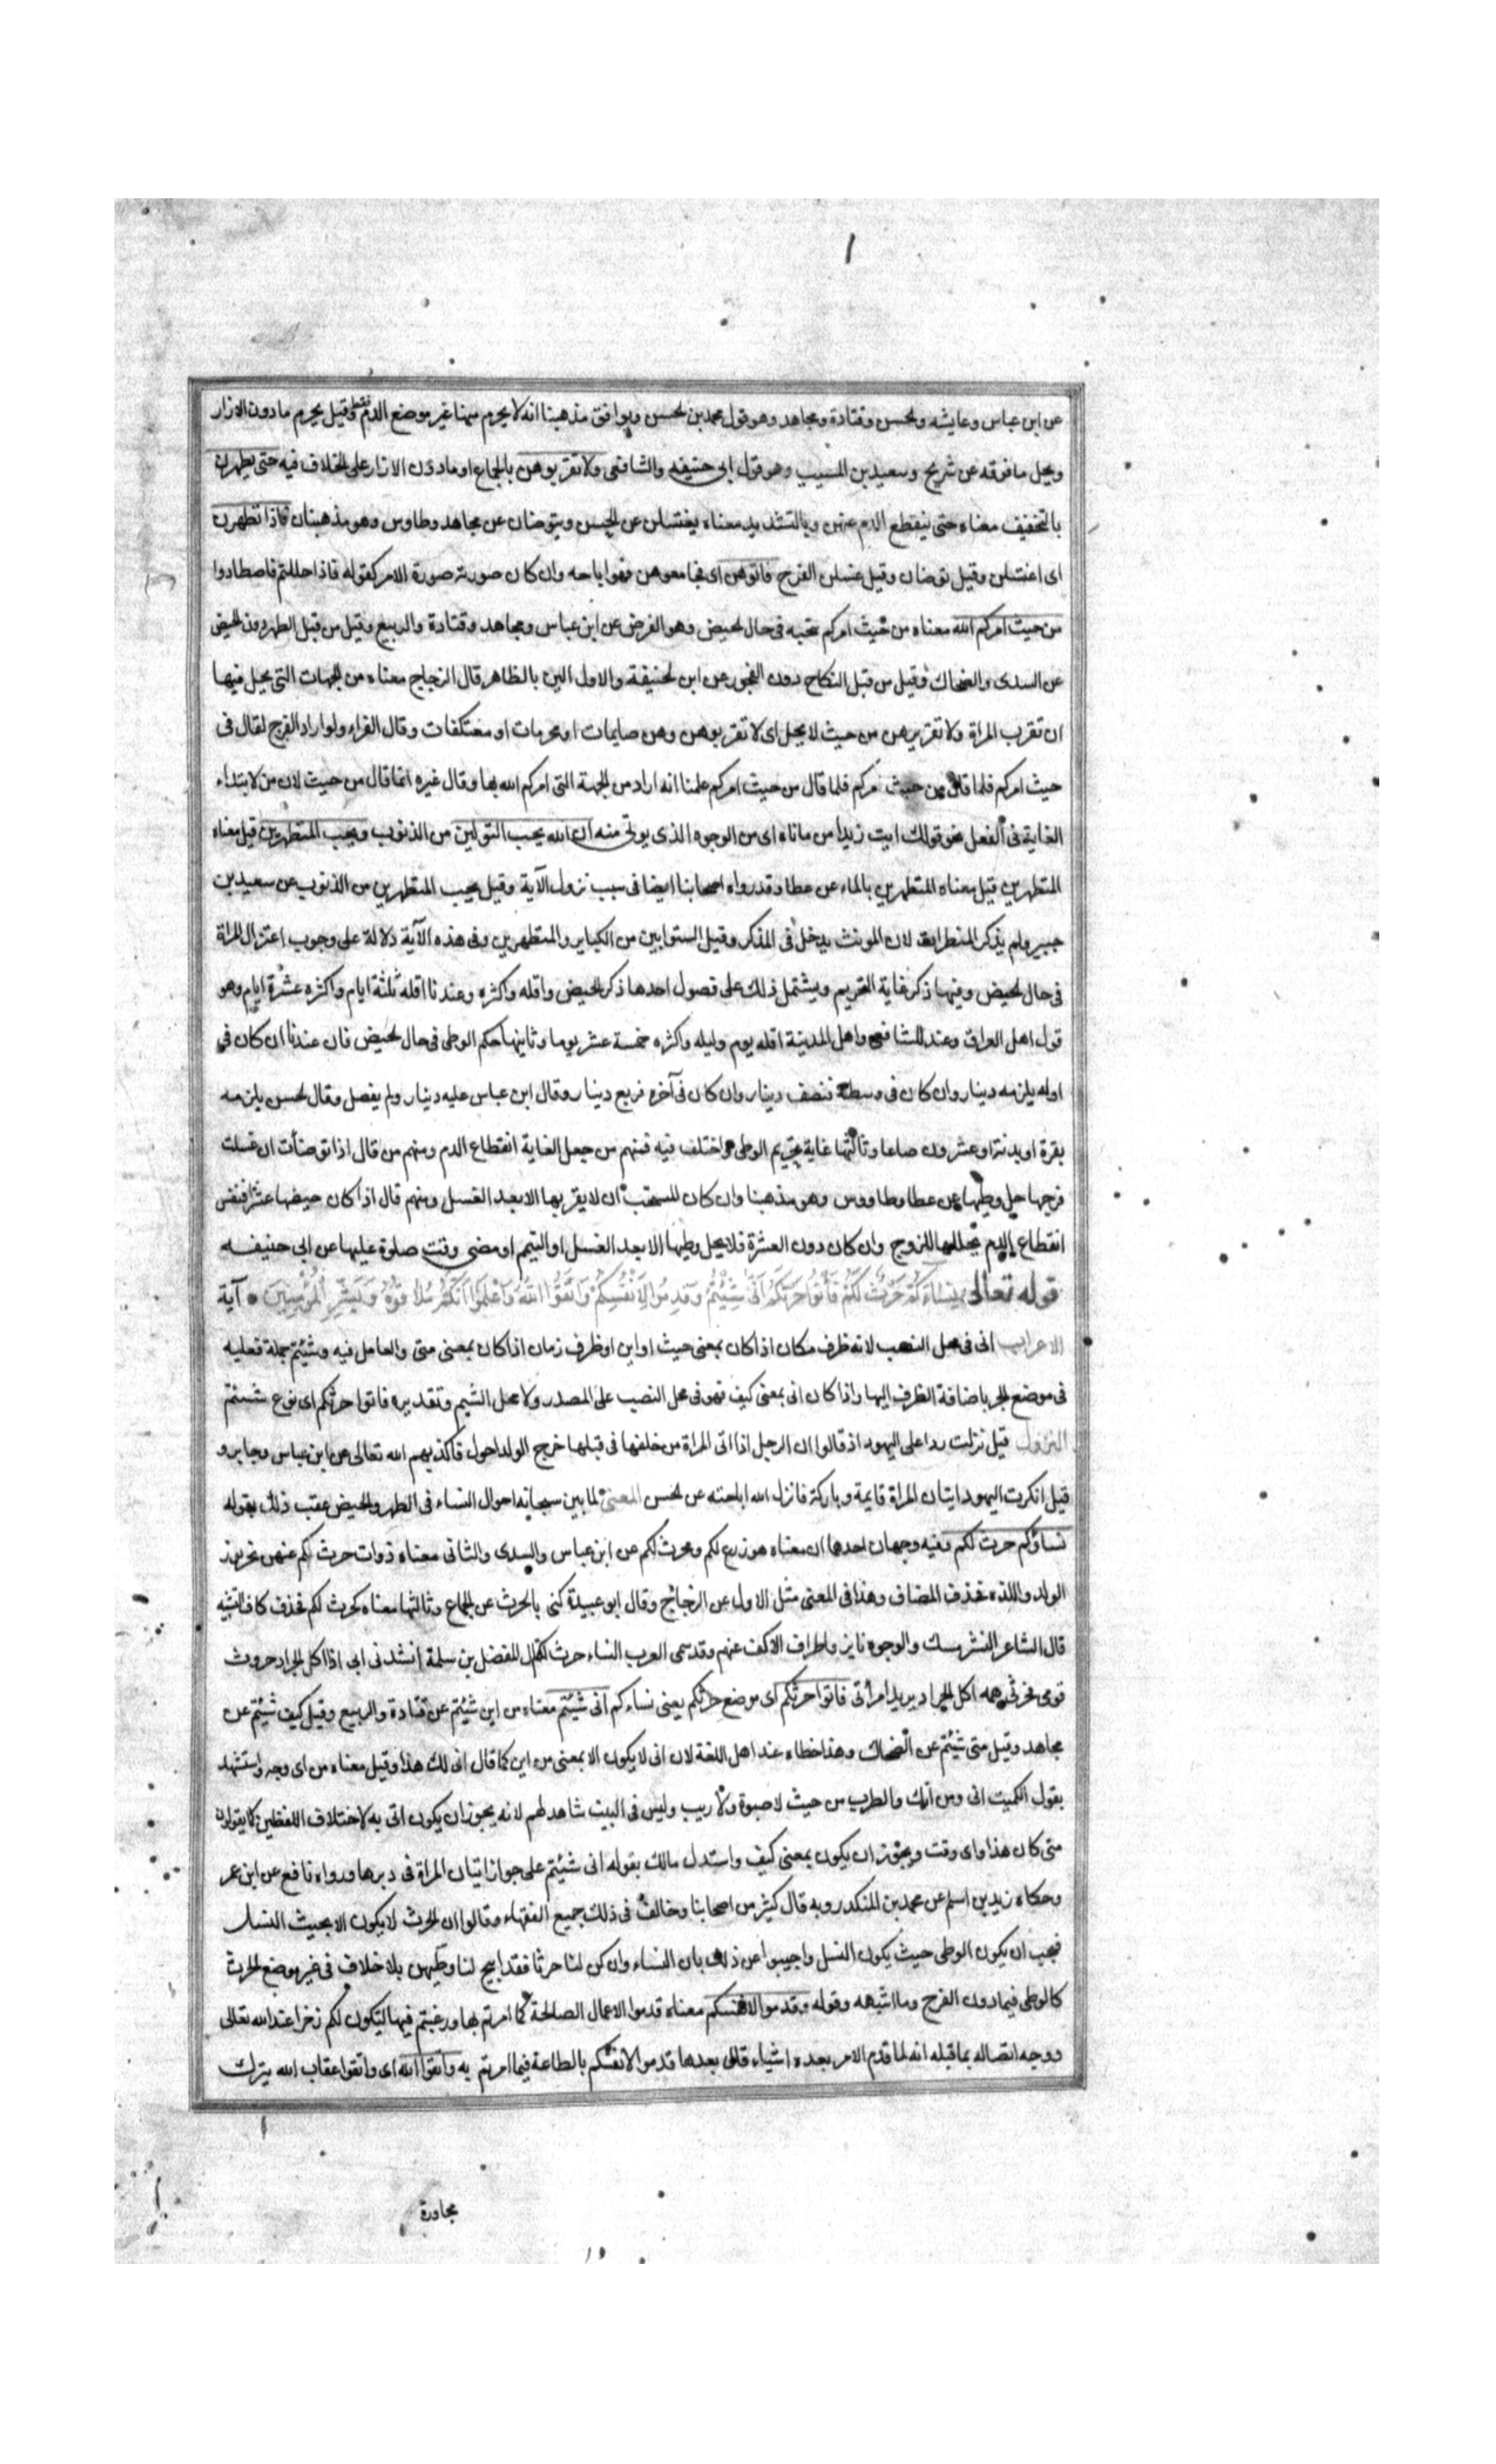 عن ابن عباس وعايشه ولحسن وقتادة ومجاهد وهو قول محمد بن لحسن ويوافق مذهبنا انه لا يحرم منها غير موضع الدم فقط وقيل يحرم مادون الازار
ويحل مافوقه عن شريح وسعيد بن المسيب وهو قول ابى حنيفه والشافعى ولا تقربوهن بالجماع او مادون الازار على الخلاف فيه حتى يطهرن
بالتخفيف معناه حتى ينقطع الدم عنهن وبالتشديد معناه يغتسلن عن الحسن ويتوضان عن مجاهد وطاوس وهو مذهبنان فاذا تطهرن
اى اغتسلن وقيل توضان وقيل غسلن الفرج فاتوهن اى فجامعوهن فهو اباحه وان كان صورته صورة الامر كقوله فاذا حللتم فاصطادوا
من حيث امركم الله معناه من حيث امركم بتجنبه فى حال لحيض وهو الفرض عن ابن عباس ومجاهد وقتادة والربيع وقيل من قبل الطهر دون لحيض
عن السدى والضحاك وقيل من قبل النكاح دون الفجور عن ابن لحنيفة والاول اليق بالظاهر قال الزجاج معناه من الجهات التى يحل فيها
ان تقرب المراة ولا تقربوهن من حيث لا يحل اى لا تقربوهن وهن صايمات او محرمات او معتكفات وقال الفراء ولو اراد الفرج لقال فى
حيث امركم فلما قال من حيث امركم فلما قال من حيث امركم علمنا انه اراد من الجهة التى امركم الله بها وقال غيره انما قال من حيث لان من لابتداء
الغاية فى الفعل نحو قولك ايت زيدا من ماتاه اى من الوجوه الذى يوتى منه ان الله يحب التوابين من الذنوب ويحب المتطهرين قيل معناه
المتطهرين قيل معناه المتطهرين بالماء عن عطا وقد رواه اصحابنا ايضا فى سبب نزول الآية وقيل يحب المتطهرين من الذنوب عن سعيد بن
جبير ولم يذكر المتطهرات لان المونث يدخل فى المذكر وقيل التوابين من الكباير والمتطهرين وفى هذه الآية دلالة على وجوب اعتزال المراة
فى حال لحيض وفيها ذكر غاية التحريم ويشتمل ذلك على فصول احدها ذكر الحيض واقله واكثره وعندنا اقله ثلثة ايام واكثره عشرة ايام وهو
قول اهل العراق وعند الشافعى واهل المدينة اقله يوم وليله واكثره خمسة عشر يوما وثانيها حكم الوطى فى حال لحيض فان عندنا ان كان فى
اوله يلزمه دينار وان كان فى وسطه فنصف دينار وان كان فى آخره فربع دينار وقال ابن عباس عليه دينار ولم يفصل وقال لحسن يلزمه
بقرة او بدنة او عشرون صاعا وثالثها غاية تحريم الوطى واختلف فيه فمنهم من جعل الغاية انقطاع الدم ومنهم من قال اذا توضأت ان غسلت
فرجها حل وطيها عن عطا وطاووس وهو مذهبنا وان كان المستحب ان لا يقربها الا بعد الغسل ومنهم قال اذا كان حيضها عشرا فنفس
انقطاع الدم يحللها للزوج وان كان دون العشرة فلا يحل وطيها الا بعد الغسل او التيمم او مضى وقت صلوة عليها عن ابى حنيفه
قوله تعالى نِسَاؤُكُمْ حَرْثٌ لَكُمْ فَأْتُوا حَرْثَكُمْ أَنَّى شِئْتُمْ وَقَدِّمُوا لِأَنْفُسِكُمْ وَاتَّقُوا اللّٰهَ وَاعْلَمُوا أَنَّكُمْ مُلَاقُوهُ وَبَشِّرِ الْمُؤْمِنِينَ ۝ آية
الاعراب انى فى محل النصب لانه ظرف مكان اذا كان بمعنى حيث او اين او ظرف زمان اذا كان بمعنى متى والعامل فيه وشيئتم جملة فعليه
فى موضع الجر باضافة الظرف اليها واذا كان انى بمعنى كيف فهو فى محل النصب على المصدر ولا محل لشيتم وتقديره فاتوا حرثكم اى نوع شئتم
النزول قيل نزلت ردا على اليهود اذ قالوا ان الرجل اذا اتى المراة من خلفها فى قبلها خرج الولد احول فاكذبهم الله تعالى عن ابن عباس وجابر و
قيل انكرت اليهود اتيان المراة قايمة وباركة فانزل الله اباحته عن لحسن المعنى لما بين سبحانه احوال النساء فى الطهر والحيض عقب ذلك بقوله
نساؤكم حرث لكم وفيه وجهان احدها ان معناه هو زرع لكم ومحرث لكم عن ابن عباس والسدى والثانى معناه ذوات حرث لكم منهن تحرثون
الولد واللذه فحذف المضاف وهذا فى المعنى مثل الاول عن الزجاج وقال ابو عبيدة كنى بالحرث عن الجماع وثالثها معناه كحرث لكم فحذف كاف التشبيه
قال الشاعر النشر مسك والوجوه دنانير واطراف الاكف عنهم وقد سمى العرب النساء حرث قال المفضل بن سلمة انشدنى ابى اذا اكل الجراد حروث
قومى فحرثى همه اكل الجراد يريد امرأتى فاتوا حرثكم اى موضع حرثكم يعنى نساءكم انى شيئتم معناه من اين شيئتم عن قتادة والربيع وقيل كيف شيئتم عن
مجاهد وقيل متى شيئتم عن الضحاك وهذا خطاء عند اهل اللغة لان انى لا يكون الا بمعنى من اين كما قال انى لك هذا وقيل معناه من اى وجه واستشهد
بقول الكميت انى ومن اين اك والطرب من حيث لا صبوة ولا ريب وليس فى البيت شاهد لهم لانه يجوز ان يكون اتى به لاختلاف اللفظين كما يقولون
متى كان هذا واى وقت ويجوز ان يكون بمعنى كيف واستدل مالك بقوله انى شيئتم على جواز اتيان المراة فى دبرها ورواه نافع عن ابن عمر
وحكاه زيد بن اسلم عن محمد بن المنكدر وبه قال كثير من اصحابنا وخالف فى ذلك جميع الفقهاء وقالوا ان الحرث لا يكون الا بحيث النسل
فيجب ان يكون الوطى حيث يكون النسل واجيبوا عن ذلك بان النساء وان كن لنا حرثا فقد ابيح لنا وطيهن بلا خلاف فى غير موضع الحرث
كالوطى فيما دون الفرج وما اشبهه وقوله وقدموا لانفسكم معناه قدموا الاعمال الصالحة كما امرتم بها ورغبتم فيها لتكون لكم ذخرا عند الله تعالى
ووجه اتصاله بما قبله انه لما قدم الامر بعده اشياء قال بعدها قدموا لانفسكم بالطاعة فيما امرتم به واتقوا الله اى واتقوا عقاب الله بترك
مجاوزة